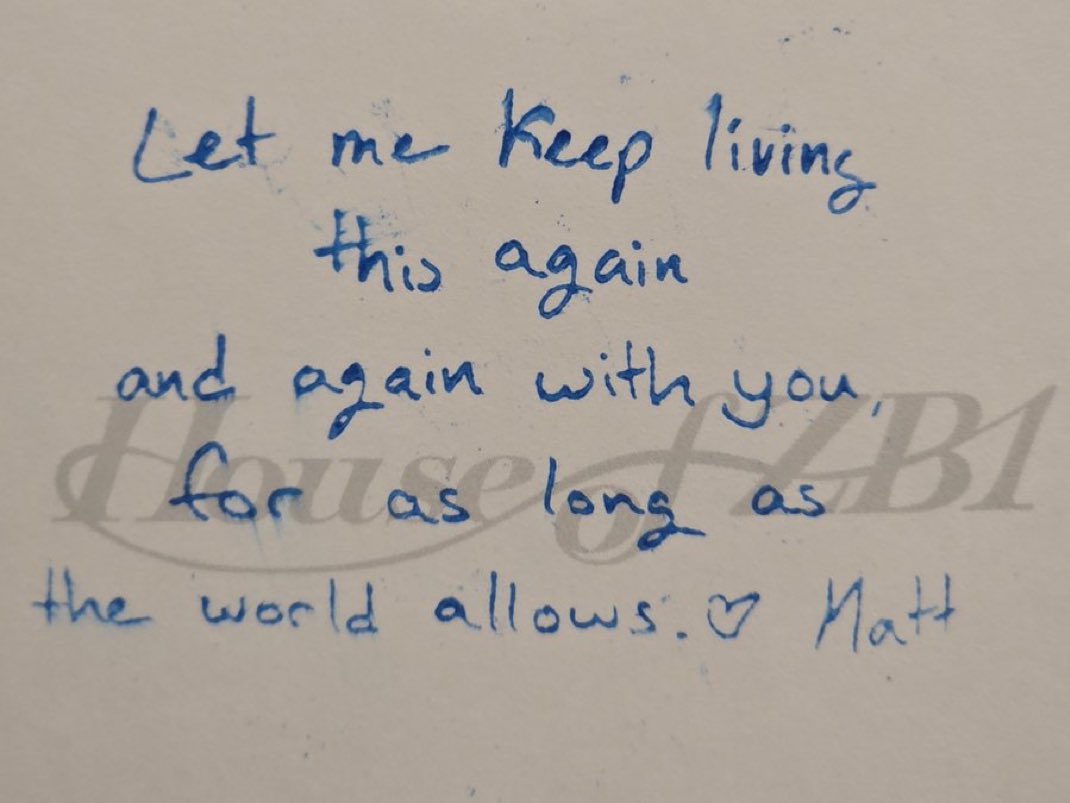 Let me keep living
this again
and again with you,
House of ZB1
for as long as
the world allows. ♡ Matt